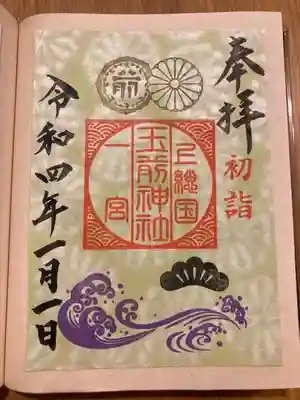 奉拝
初詣
上総国
玉前神社
一宮
前
令和四年一月一日